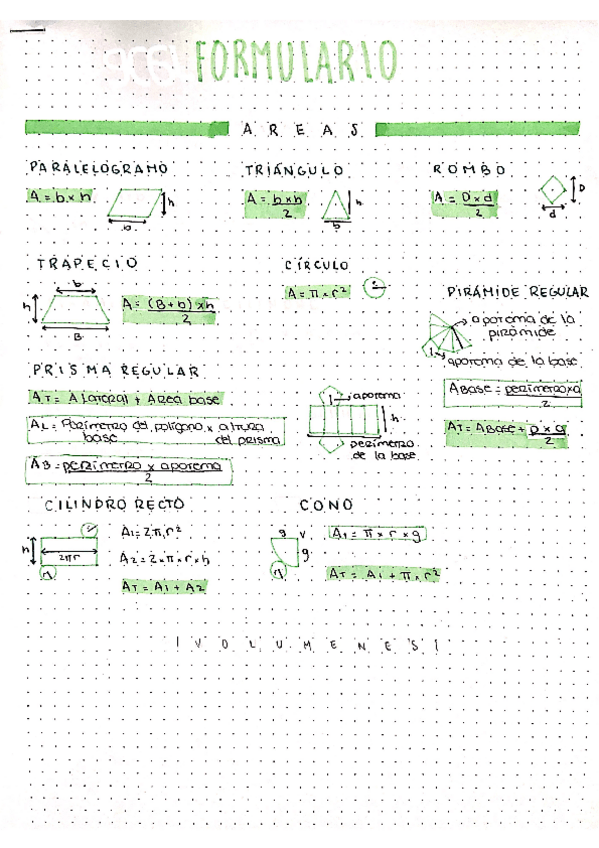 FORMULARIO
AREAS
PARALELOGRAMO
A = b x h
h
b
TRIÁNGULO
A = b x h
2
h
b
ROMBO
A = D x d
2
D
d
TRAPECIO
b
h
B
A = (B + b) x h
2
CÍRCULO
A = π x r²
r
PIRÁMIDE REGULAR
apotema de la
pirámide
apotema de la base
ABASE = perímetro x a
2
AT = ABASE + p x a
2
PRISMA REGULAR
AT = A lateral + Area base
AL = Perímetro del polígono x altura
base del prisma
AB = perímetro x apotema
2
apotema
h
perímetro
de la base
CILINDRO RECTO
h
2πr
r
A1 = 2π r²
A2 = 2 x π x r x h
AT = A1 + A2
CONO
g
V
g
r
A1 = π x r x g
AT = A1 + π x r²
| VOLUMENES |